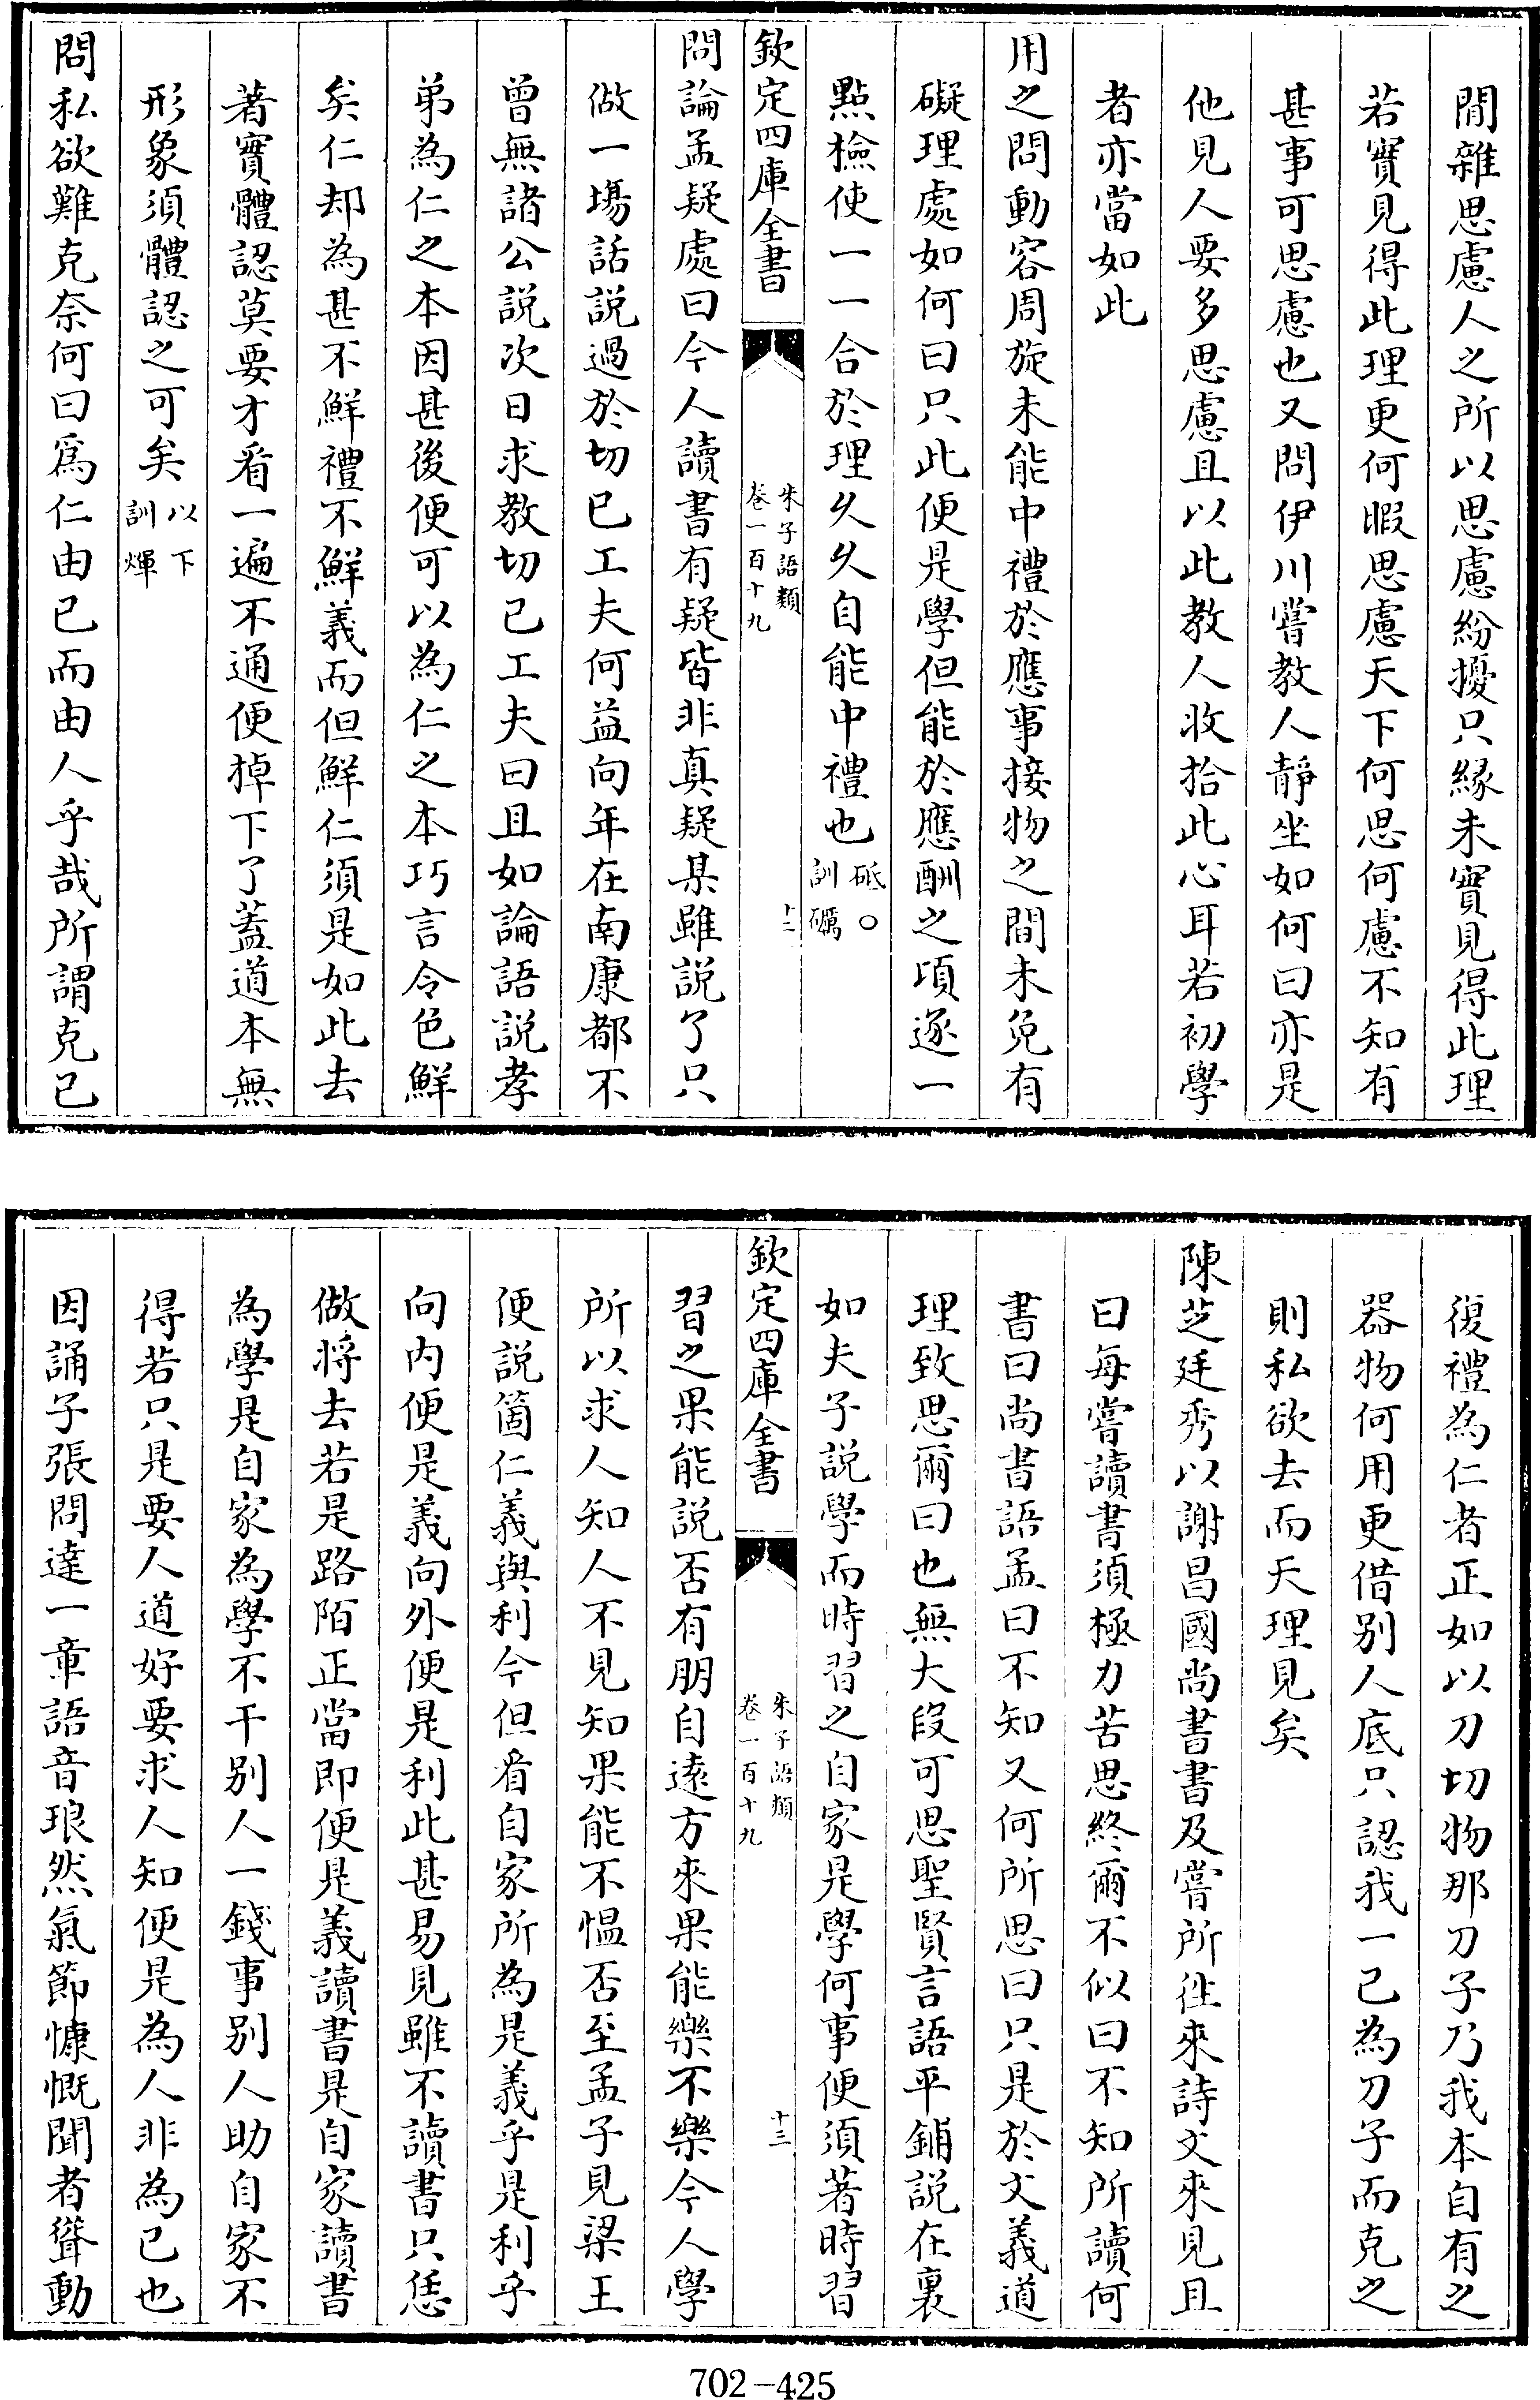 閒雜思慮人之所以思慮紛擾只緣未實見得此理
若實見得此理更何暇思慮天下何思何慮不知有
甚事可思慮也又問伊川嘗教人靜坐如何曰亦是
他見人要多思慮且以此教人收拾此心耳若初學
者亦當如此
用之問動容周旋未能中禮於應事接物之間未免有
礙理處如何曰只此便是學但能於應酬之頃逐一
點檢使一一合於理久久自能中禮也砥○
訓礪
欽定四庫全書
朱子語類
卷一百十九
十二
問論孟疑處曰今人讀書有疑皆非真疑某雖説了只
做一場話説過於切已工夫何益向年在南康都不
曾無諸公説次日求教切已工夫曰且如論語説孝
弟為仁之本因甚後便可以為仁之本巧言令色鮮
矣仁却為甚不鮮禮不鮮義而但鮮仁須是如此去
著實體認莫要才看一遍不通便掉下了蓋道本無
形象須體認之可矣以下
訓煇
問私欲難克奈何曰爲仁由已而由人乎哉所謂克已
復禮為仁者正如以刀切物那刀子乃我本自有之
器物何用更借别人底只認我一已為刀子而克之
則私欲去而天理見矣
陳芝廷秀以謝昌國尚書書及嘗所徃來詩文來見且
曰每嘗讀書須極力苦思終爾不似曰不知所讀何
書曰尚書語孟曰不知又何所思曰只是於文義道
理致思爾曰也無大段可思聖賢言語平鋪説在裏
如夫子説學而時習之自家是學何事便須著時習
欽定四庫全書
朱子語類
卷一百十九
十三
習之果能説否有朋自逺方來果能樂不樂今人學
所以求人知人不見知果能不愠否至孟子見梁王
便説箇仁義與利今但看自家所為是義乎是利乎
向内便是義向外便是利此甚易見雖不讀書只恁
做将去若是路陌正當即便是義讀書是自家讀書
為學是自家為學不干别人一錢事别人助自家不
得若只是要人道好要求人知便是為人非為已也
因誦子張問達一章語音琅然氣節慷慨聞者聳動
702-425